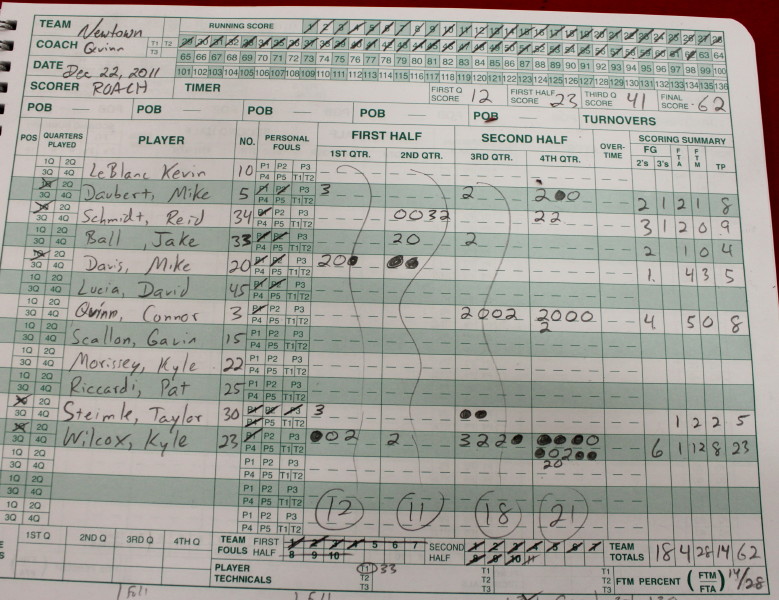 TEAM Newtown RUNNING SCORE 1 2 3 4 5 6 7 8 9 10 11 12 13 14 15 16 17 18 19 20 21 22 23 24 25 26 27 28
COACH Quinn T1 T2 T3 29 30 31 32 33 34 35 36 37 38 39 40 41 42 43 44 45 46 47 48 49 50 51 52 53 54 55 56 57 58 59 60 61 62 63 64
65 66 67 68 69 70 71 72 73 74 75 76 77 78 79 80 81 82 83 84 85 86 87 88 89 90 91 92 93 94 95 96 97 98 99 100
DATE Dec 22, 2011 101 102 103 104 105 106 107 108 109 110 111 112 113 114 115 116 117 118 119 120 121 122 123 124 125 126 127 128 129 130 131 132 133 134 135 136
SCORER ROACH TIMER FIRST Q SCORE 12 FIRST HALF SCORE 23 THIRD Q SCORE 41 FINAL SCORE 62
POB — POB — POB — POB — POB TURNOVERS
POS QUARTERS PLAYED PLAYER NO. PERSONAL FOULS FIRST HALF SECOND HALF OVER-TIME SCORING SUMMARY
1ST QTR. 2ND QTR. 3RD QTR. 4TH QTR. FG 2's 3's FTA FTM TP
1Q 2Q 3Q 4Q LeBlanc Kevin 10 P1 P2 P3 P4 P5 T1 T2
1Q 2Q 3Q 4Q Daubert, Mike 5 P1 P2 P3 P4 P5 T1 T2 3 2 2 0 2 1 2 1 8
1Q 2Q 3Q 4Q Schmidt, Reid 34 P1 P2 P3 P4 P5 T1 T2 0032 22 3 1 2 0 9
1Q 2Q 3Q 4Q Ball, Jake 33 P1 P2 P3 P4 P5 T1 T2 20 2 2 1 0 4
1Q 2Q 3Q 4Q Davis, Mike 20 P1 P2 P3 P4 P5 T1 T2 20 1 4 3 5
1Q 2Q 3Q 4Q Lucia, David 45 P1 P2 P3 P4 P5 T1 T2
1Q 2Q 3Q 4Q Quinn, Connor 3 P1 P2 P3 P4 P5 T1 T2 2002 2000 2 4 5 0 8
1Q 2Q 3Q 4Q Scallon, Gavin 15 P1 P2 P3 P4 P5 T1 T2
1Q 2Q 3Q 4Q Morissey, Kyle 22 P1 P2 P3 P4 P5 T1 T2
1Q 2Q 3Q 4Q Riccardi, Pat 25 P1 P2 P3 P4 P5 T1 T2
1Q 2Q 3Q 4Q Steimle, Taylor 30 P1 P2 P3 P4 P5 T1 T2 3 1 2 2 5
1Q 2Q 3Q 4Q Wilcox, Kyle 23 P1 P2 P3 P4 P5 T1 T2 02 2 322 0 02 20 6 1 12 8 23
1Q 2Q 3Q 4Q P1 P2 P3 P4 P5 T1 T2
1Q 2Q 3Q 4Q P1 P2 P3 P4 P5 T1 T2
1Q 2Q 3Q 4Q P1 P2 P3 P4 P5 T1 T2 12 11 18 21
1ST Q 2ND Q 3RD Q 4TH Q TEAM FOULS FIRST HALF 1 2 3 4 5 6 7 8 9 10 SECOND HALF 1 2 3 4 5 6 7 8 9 10 11 TEAM TOTALS 18 4 28 14 62
PLAYER TECHNICALS T1 33 T2 T3 T1 T2 T3 FTM PERCENT (FTM/FTA) 14/28